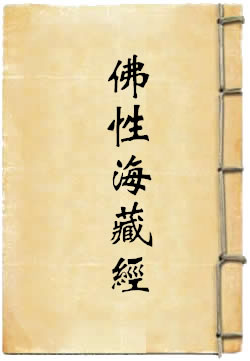 佛性海藏經